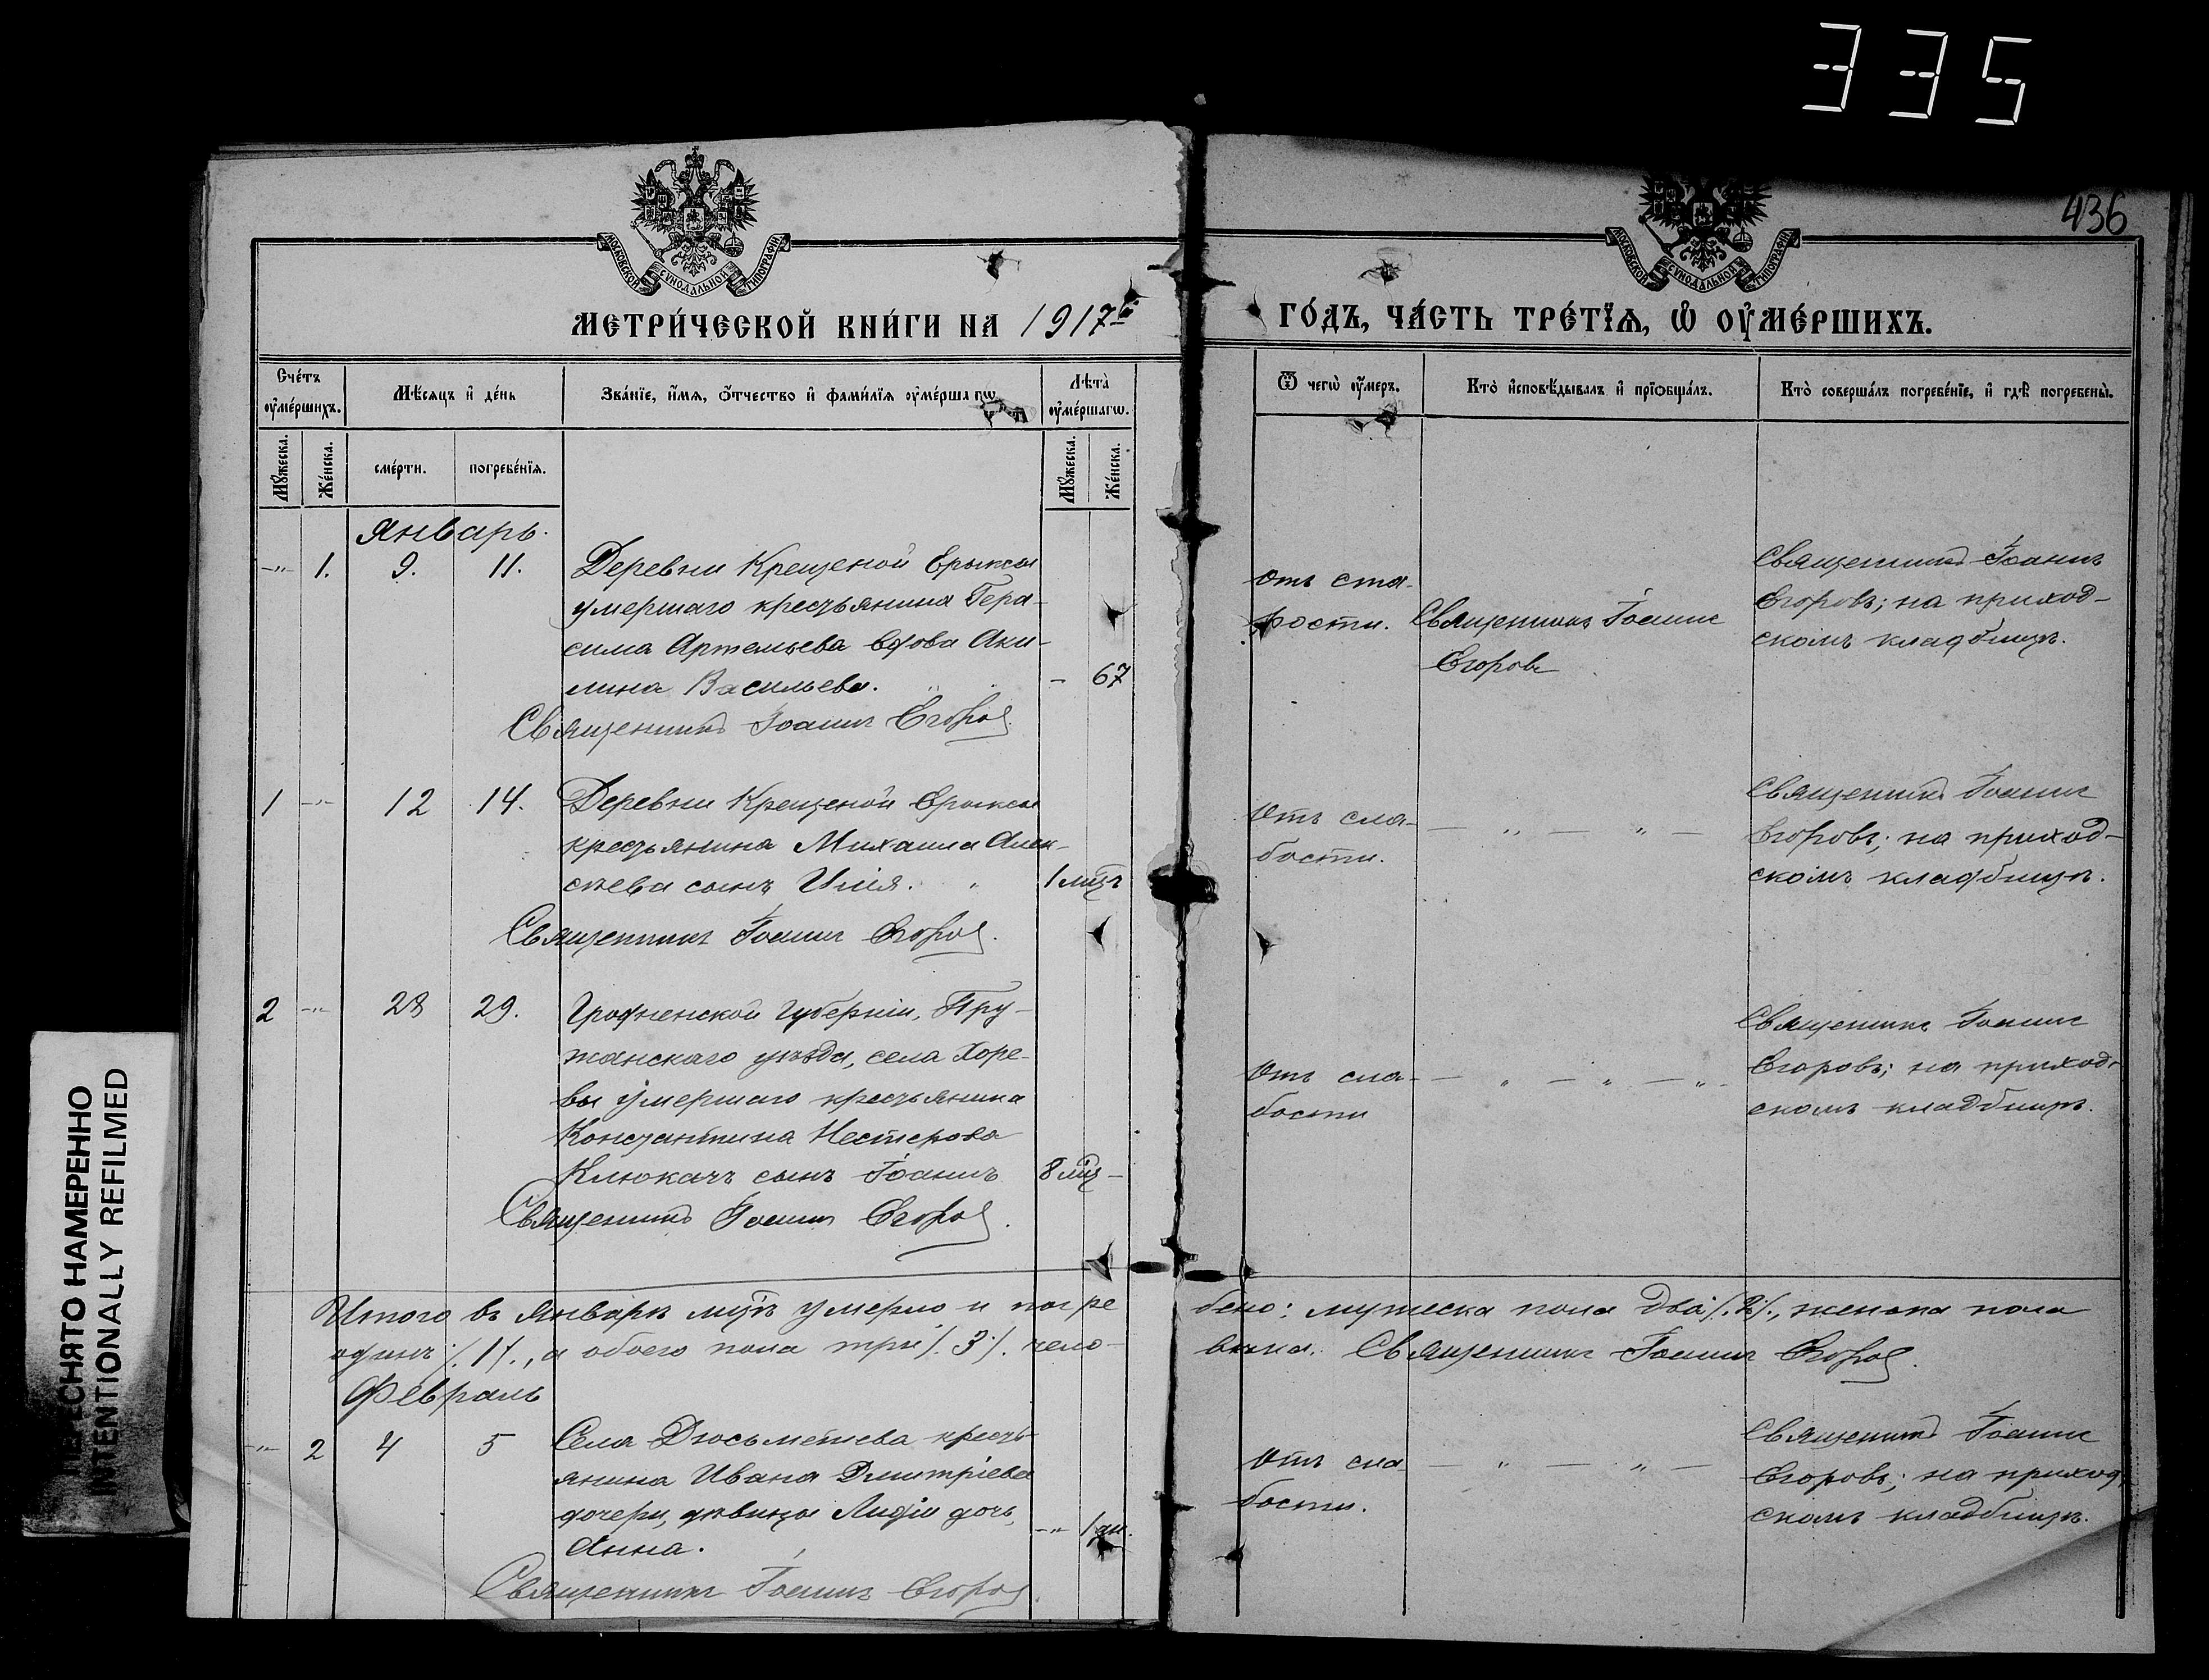 335
436
МОСКОВСКОЙ СУНОДАЛЬНОЙ ТИПОГРАФІИ
МОСКОВСКОЙ СУНОДАЛЬНОЙ ТИПОГРАФІИ
МЕТРИ́ЧЕСКОЙ КНИ́ГИ НА 1917й
ГО́ДЪ, ЧА́СТЬ ТРЕ́ТЇѦ, Ѡ҆ ОУ҆МЕ́РШИХЪ.
Сче́тъ оу҆ме́ршихъ.
Мѣ́сяцъ и҆ де́нь
Зва́нїе, и҆́мѧ, ѻ҆́тчество и҆ фами́лїѧ оу҆ме́ршагѡ
Лѣ́та оу҆ме́ршагѡ.
Ѿ чегѡ̀ оу҆́меръ.
Кто̀ и҆сповѣ́дывалъ и҆ прїѡбща́лъ.
Кто̀ соверша́лъ погребе́нїе, и҆ гдѣ̀ погребены̀.
Мꙋ́жеска.
Же́нска.
сме́рти.
погребе́нїѧ.
Мꙋ́жеска.
Же́нска.
Январь.
-"- 1. 9. 11. Деревни Крещеной Ерыксы
умершаго крестьянина Гера-
сима Артемьева вдова Аки-
лина Васильева. - 67
Священникъ Іоаннъ Егоров
Отъ ста-
рости.
Священникъ Іоаннъ
Егоровъ
Священникъ Іоаннъ
Егоровъ; на приход-
скомъ кладбищѣ.
1 -"- 12 14. Деревни Крещеной Ерыксы
крестьянина Михаила Алек-
сѣева сынъ Илія. " 1 мцъ
Священникъ Іоаннъ Егоров.
Отъ сла-
бости.
— " — " —
Священникъ Іоаннъ
Егоровъ; на приход-
скомъ кладбищѣ.
2 -"- 28 29. Гродненской губерніи, Пру-
жанскаго уѣзда, села Хоре-
вы умершаго крестьянина
Константина Нестерова
Клюкачъ сынъ Іоаннъ 8 мцъ -
Священникъ Іоаннъ Егоров.
Отъ сла-
бости
— " — " — "
Священникъ Іоаннъ
Егоровъ; на приход-
скомъ кладбищѣ.
Итого въ Январѣ мцѣ умерло и погре
бено: мужеска пола два /.2/., женска пола
одинъ /.1/., а обоего пола три /.3/. чело-
вѣка. Священникъ Іоаннъ Егоров.
Февраль
-"- 2 4 5 Села Дюсьметева кресть-
янина Ивана Дмитріева
дочери, дѣвицы Лидіи дочь,
Анна. -"- 1 дн.
Священникъ Іоаннъ Егоров.
Отъ сла-
бости.
— " — " —
Священникъ Іоаннъ
Егоровъ; на приход-
скомъ кладбищѣ.
ПЕРЕСНЯТО НАМЕРЕННО
INTENTIONALLY REFILMED